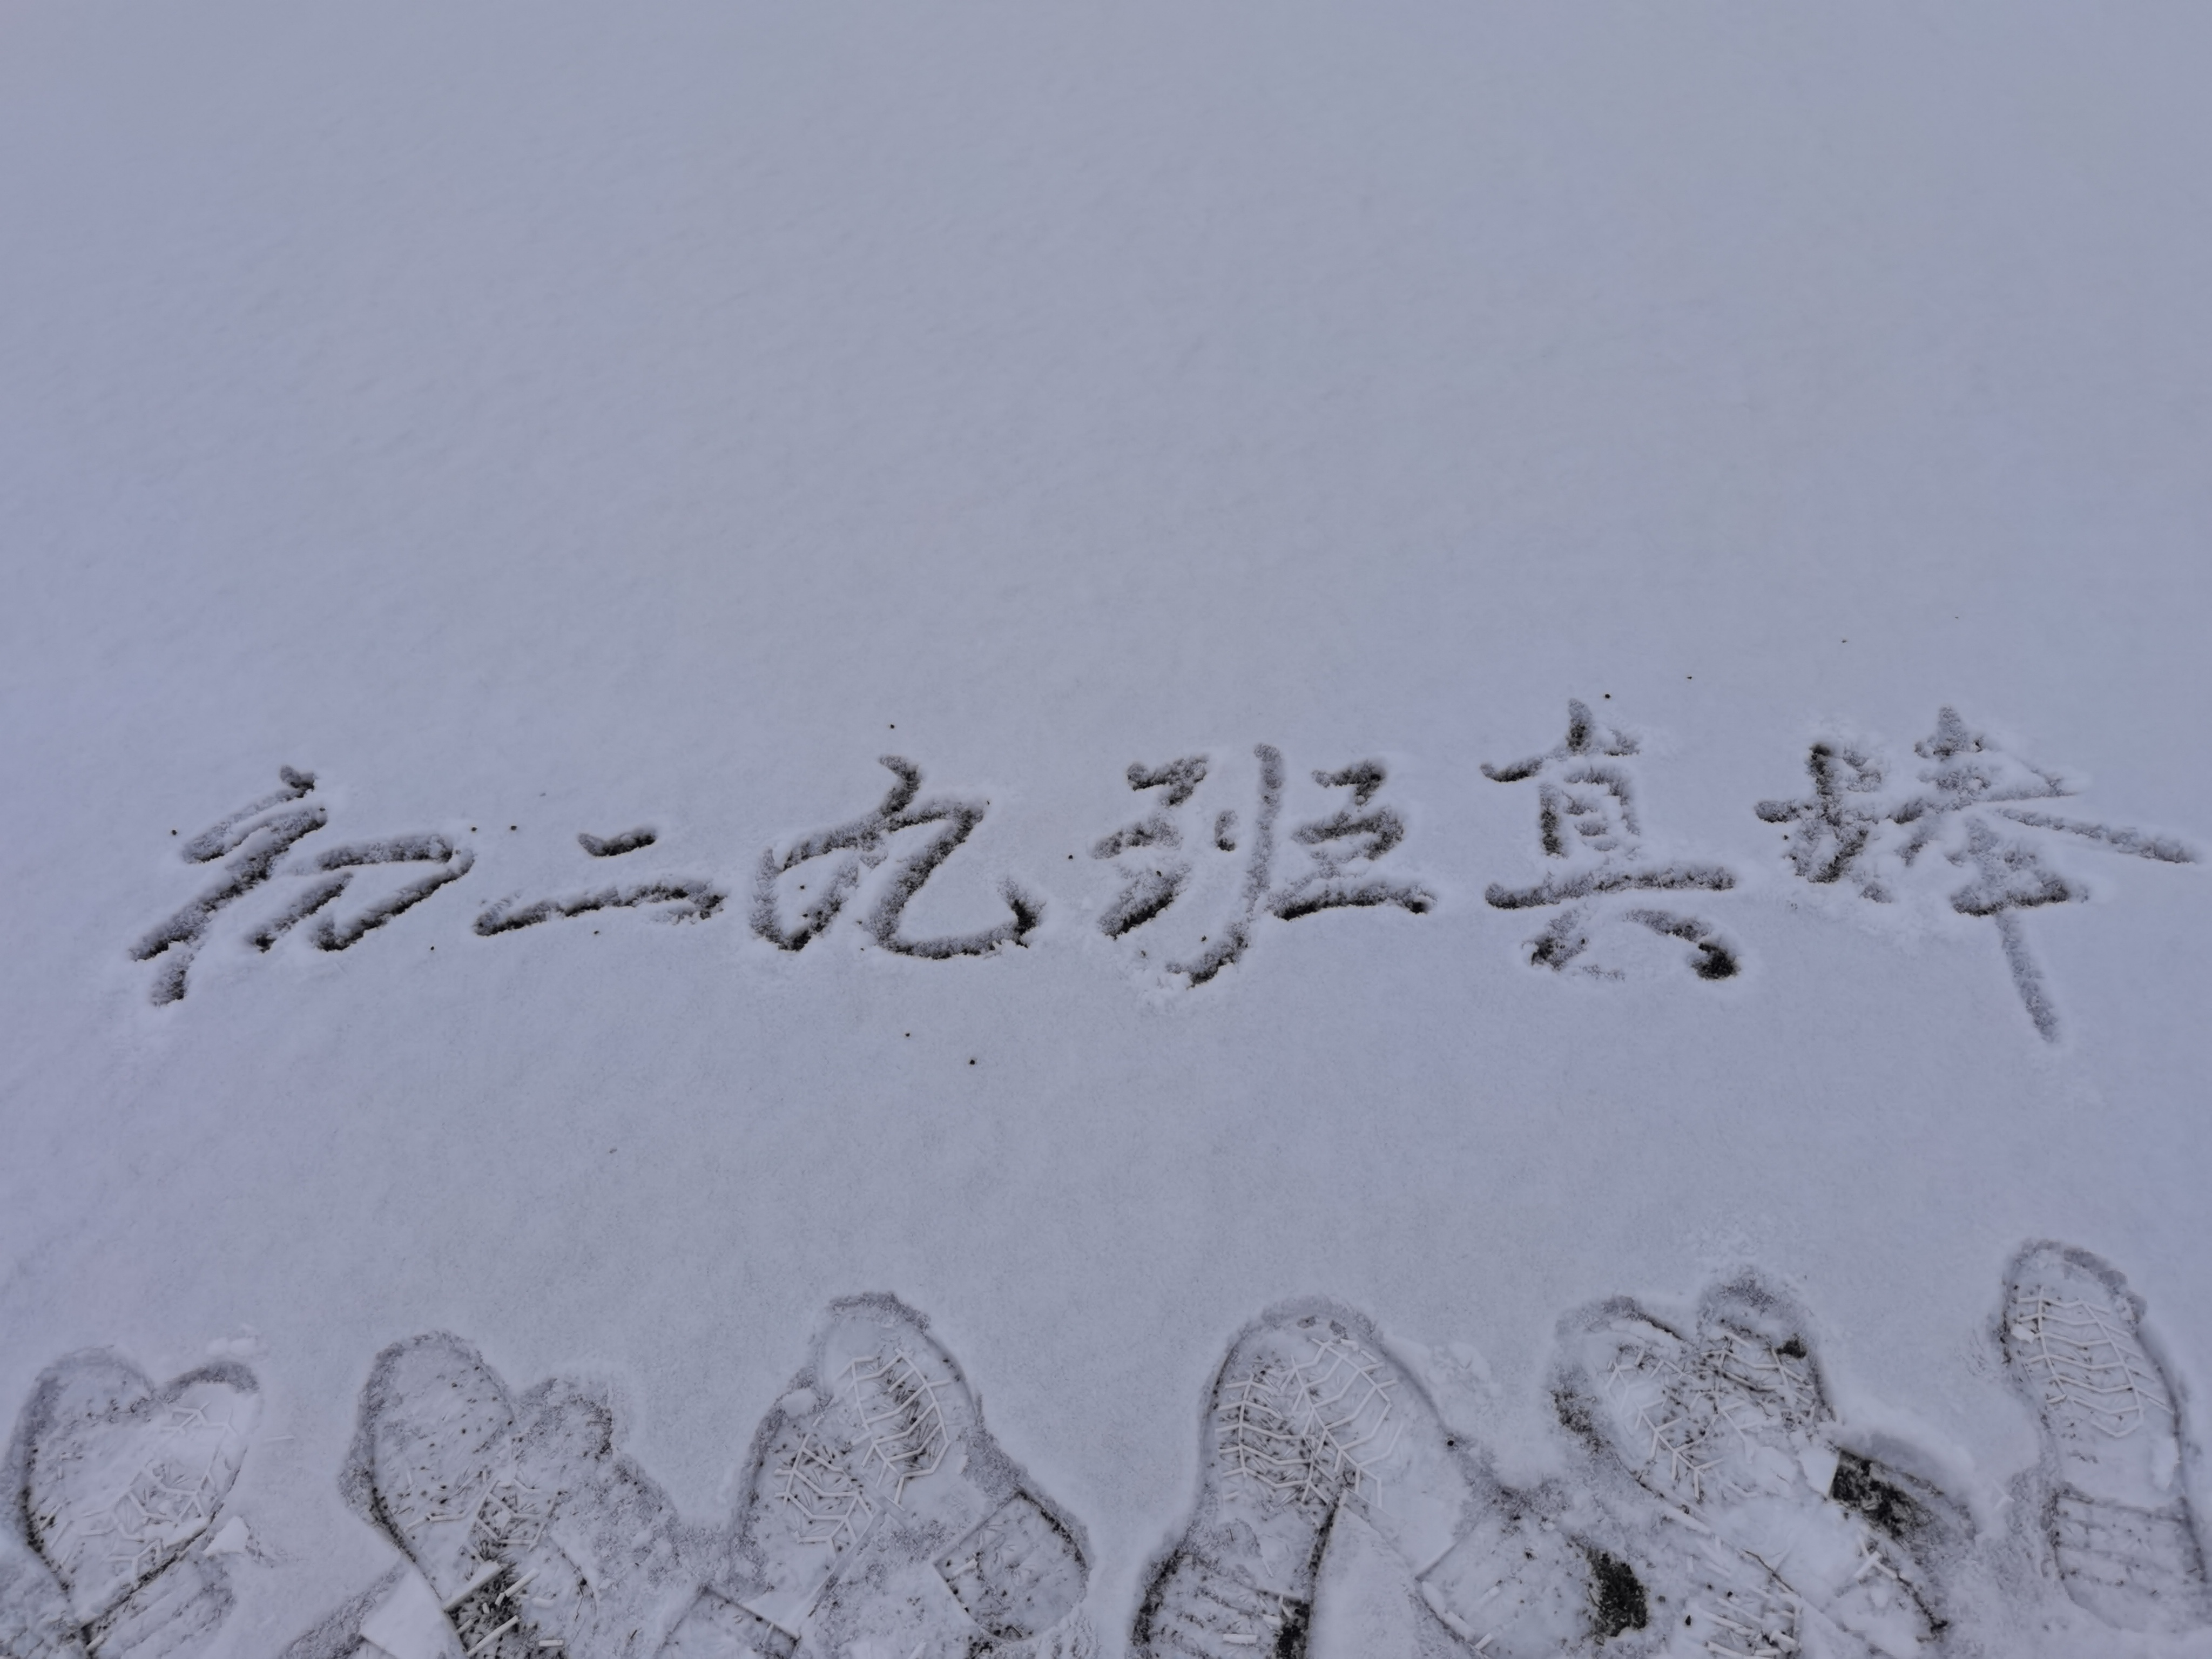 初二九班真棒